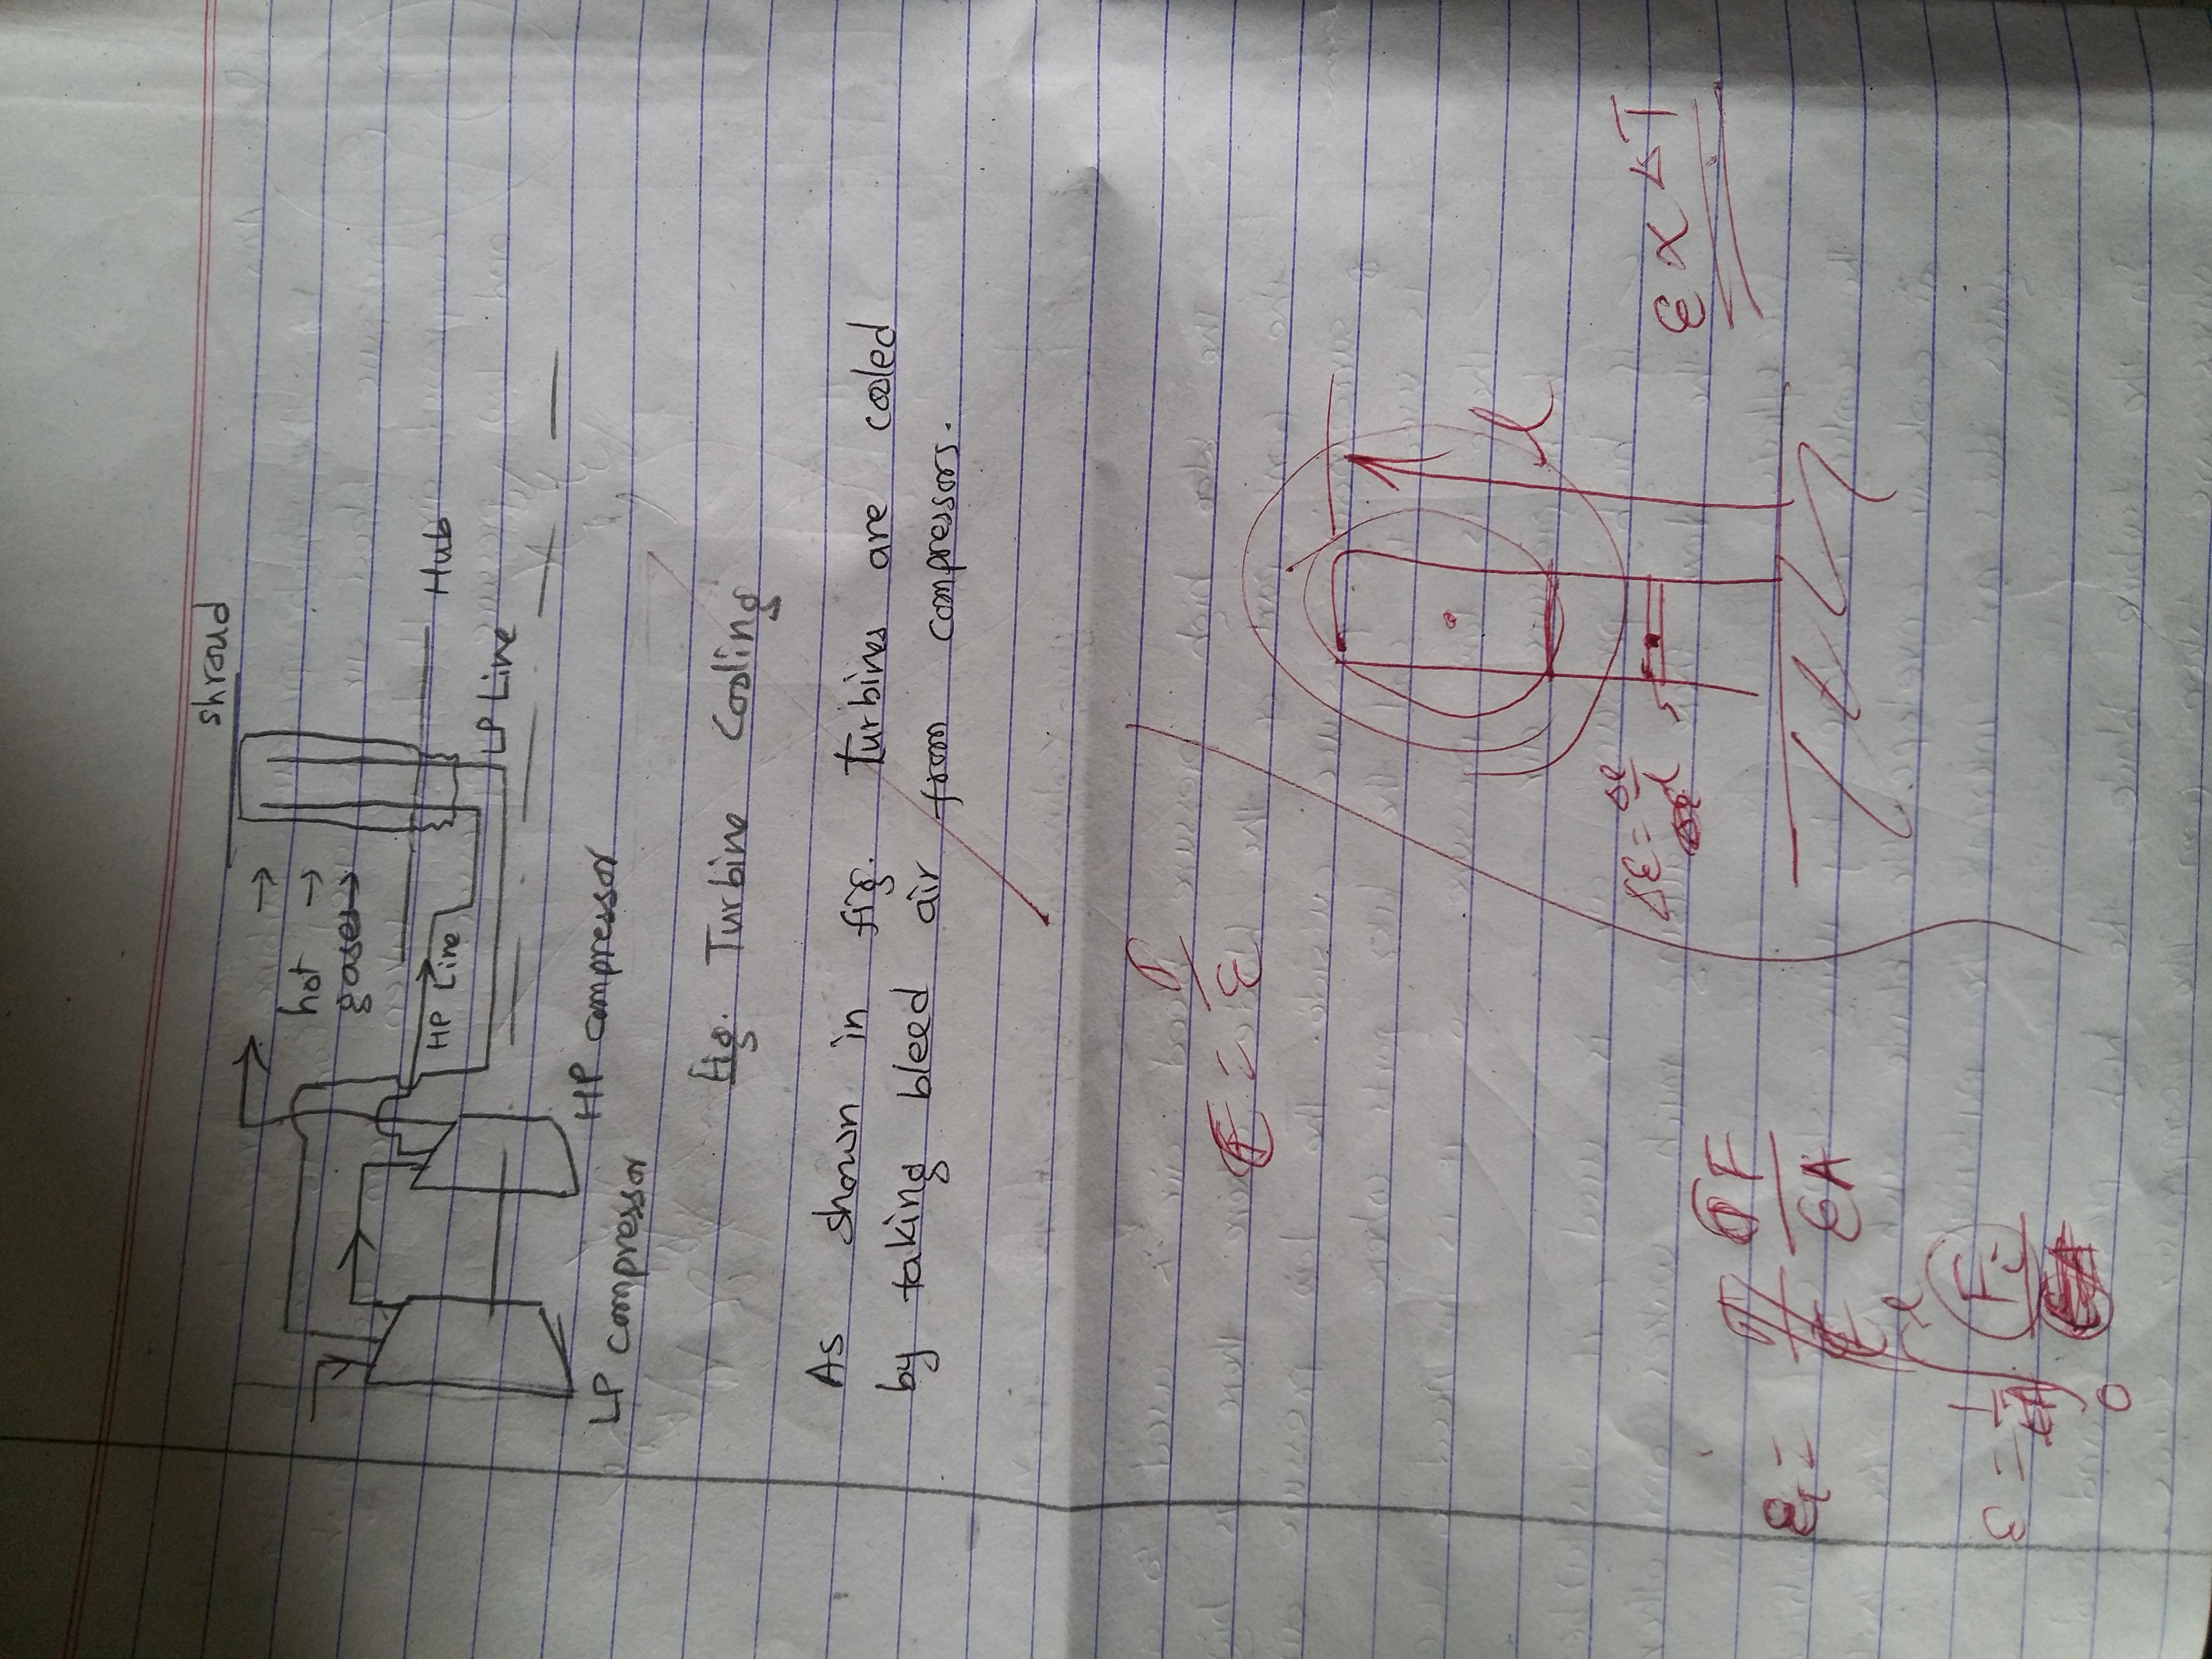 shroud
hot
gases
Hub
HP Line
LP Line
HP compressor
LP compressor
Fig. Turbine Cooling
As shown in fig. turbines are cooled
by taking bleed air from compressors.
E = σ/ε
l
Δε = Δl/l
E α ΔT
F/EA
ε =